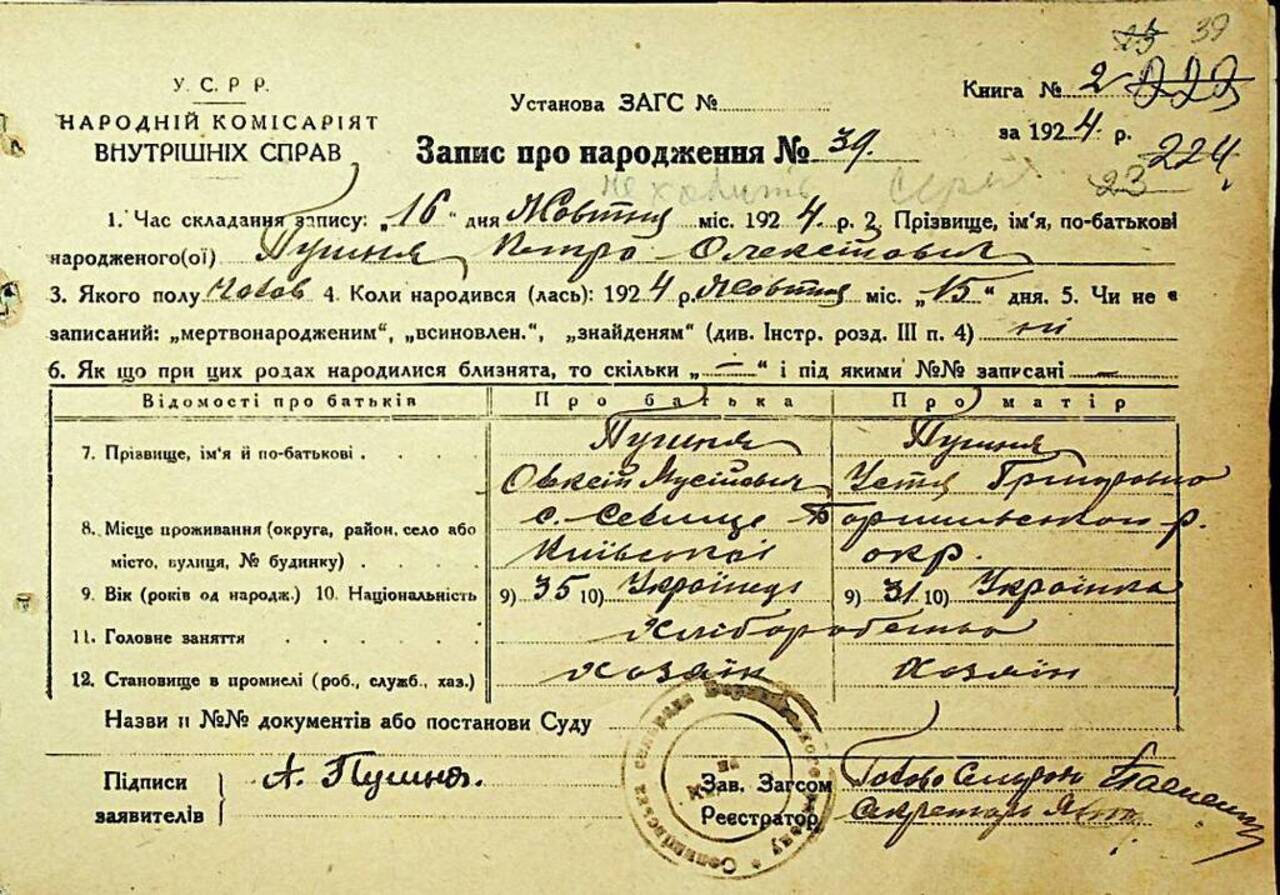 23 39
У. С. Р Р.
НАРОДНІЙ КОМІСАРІЯТ
ВНУТРІШНІХ СПРАВ
Установа ЗАГС №
Книга № 2 222
за 1924 р.
224
Запис про народження № 39.
23
1. Час складання запису: „16" дня Жовтня міс. 1924 р. 2. Прізвище, ім'я, по-батькові
народженого(ої) Пушня Петро Олексійович
3. Якого полу Чолов 4. Коли народився (лась): 1924 р. Жовтня міс. „15" дня. 5. Чи не є
записаний: „мертвонародженим", „всиновлен.", „знайденям" (див. Інстр. розд. III п. 4) ні
6. Як що при цих родах народилися близнята, то скільки „—" і під якими №№ записані —
Відомості про батьків Про батька Про матір
7. Прізвище, ім'я й по-батькові . . . . Пушня Пушня
Овксій Мусійович Устя Григоровна
8. Місце проживання (округа, район, село або с. Селище р.
місто, вулиця, № будинку) . . . . Київської окр.
9. Вік (років од народж.) 10. Національність 9) 35 10) Українець 9) 31 10) Українка
11. Головне заняття . . . . . Хліборобство
12. Становище в промислі (роб., служб., хаз.) Хозяін Хозяін
Назви й №№ документів або постанови Суду
Підписи
заявителів
А. Пушня.
Зав. Загсом Голово
Реєстратор Секретарь